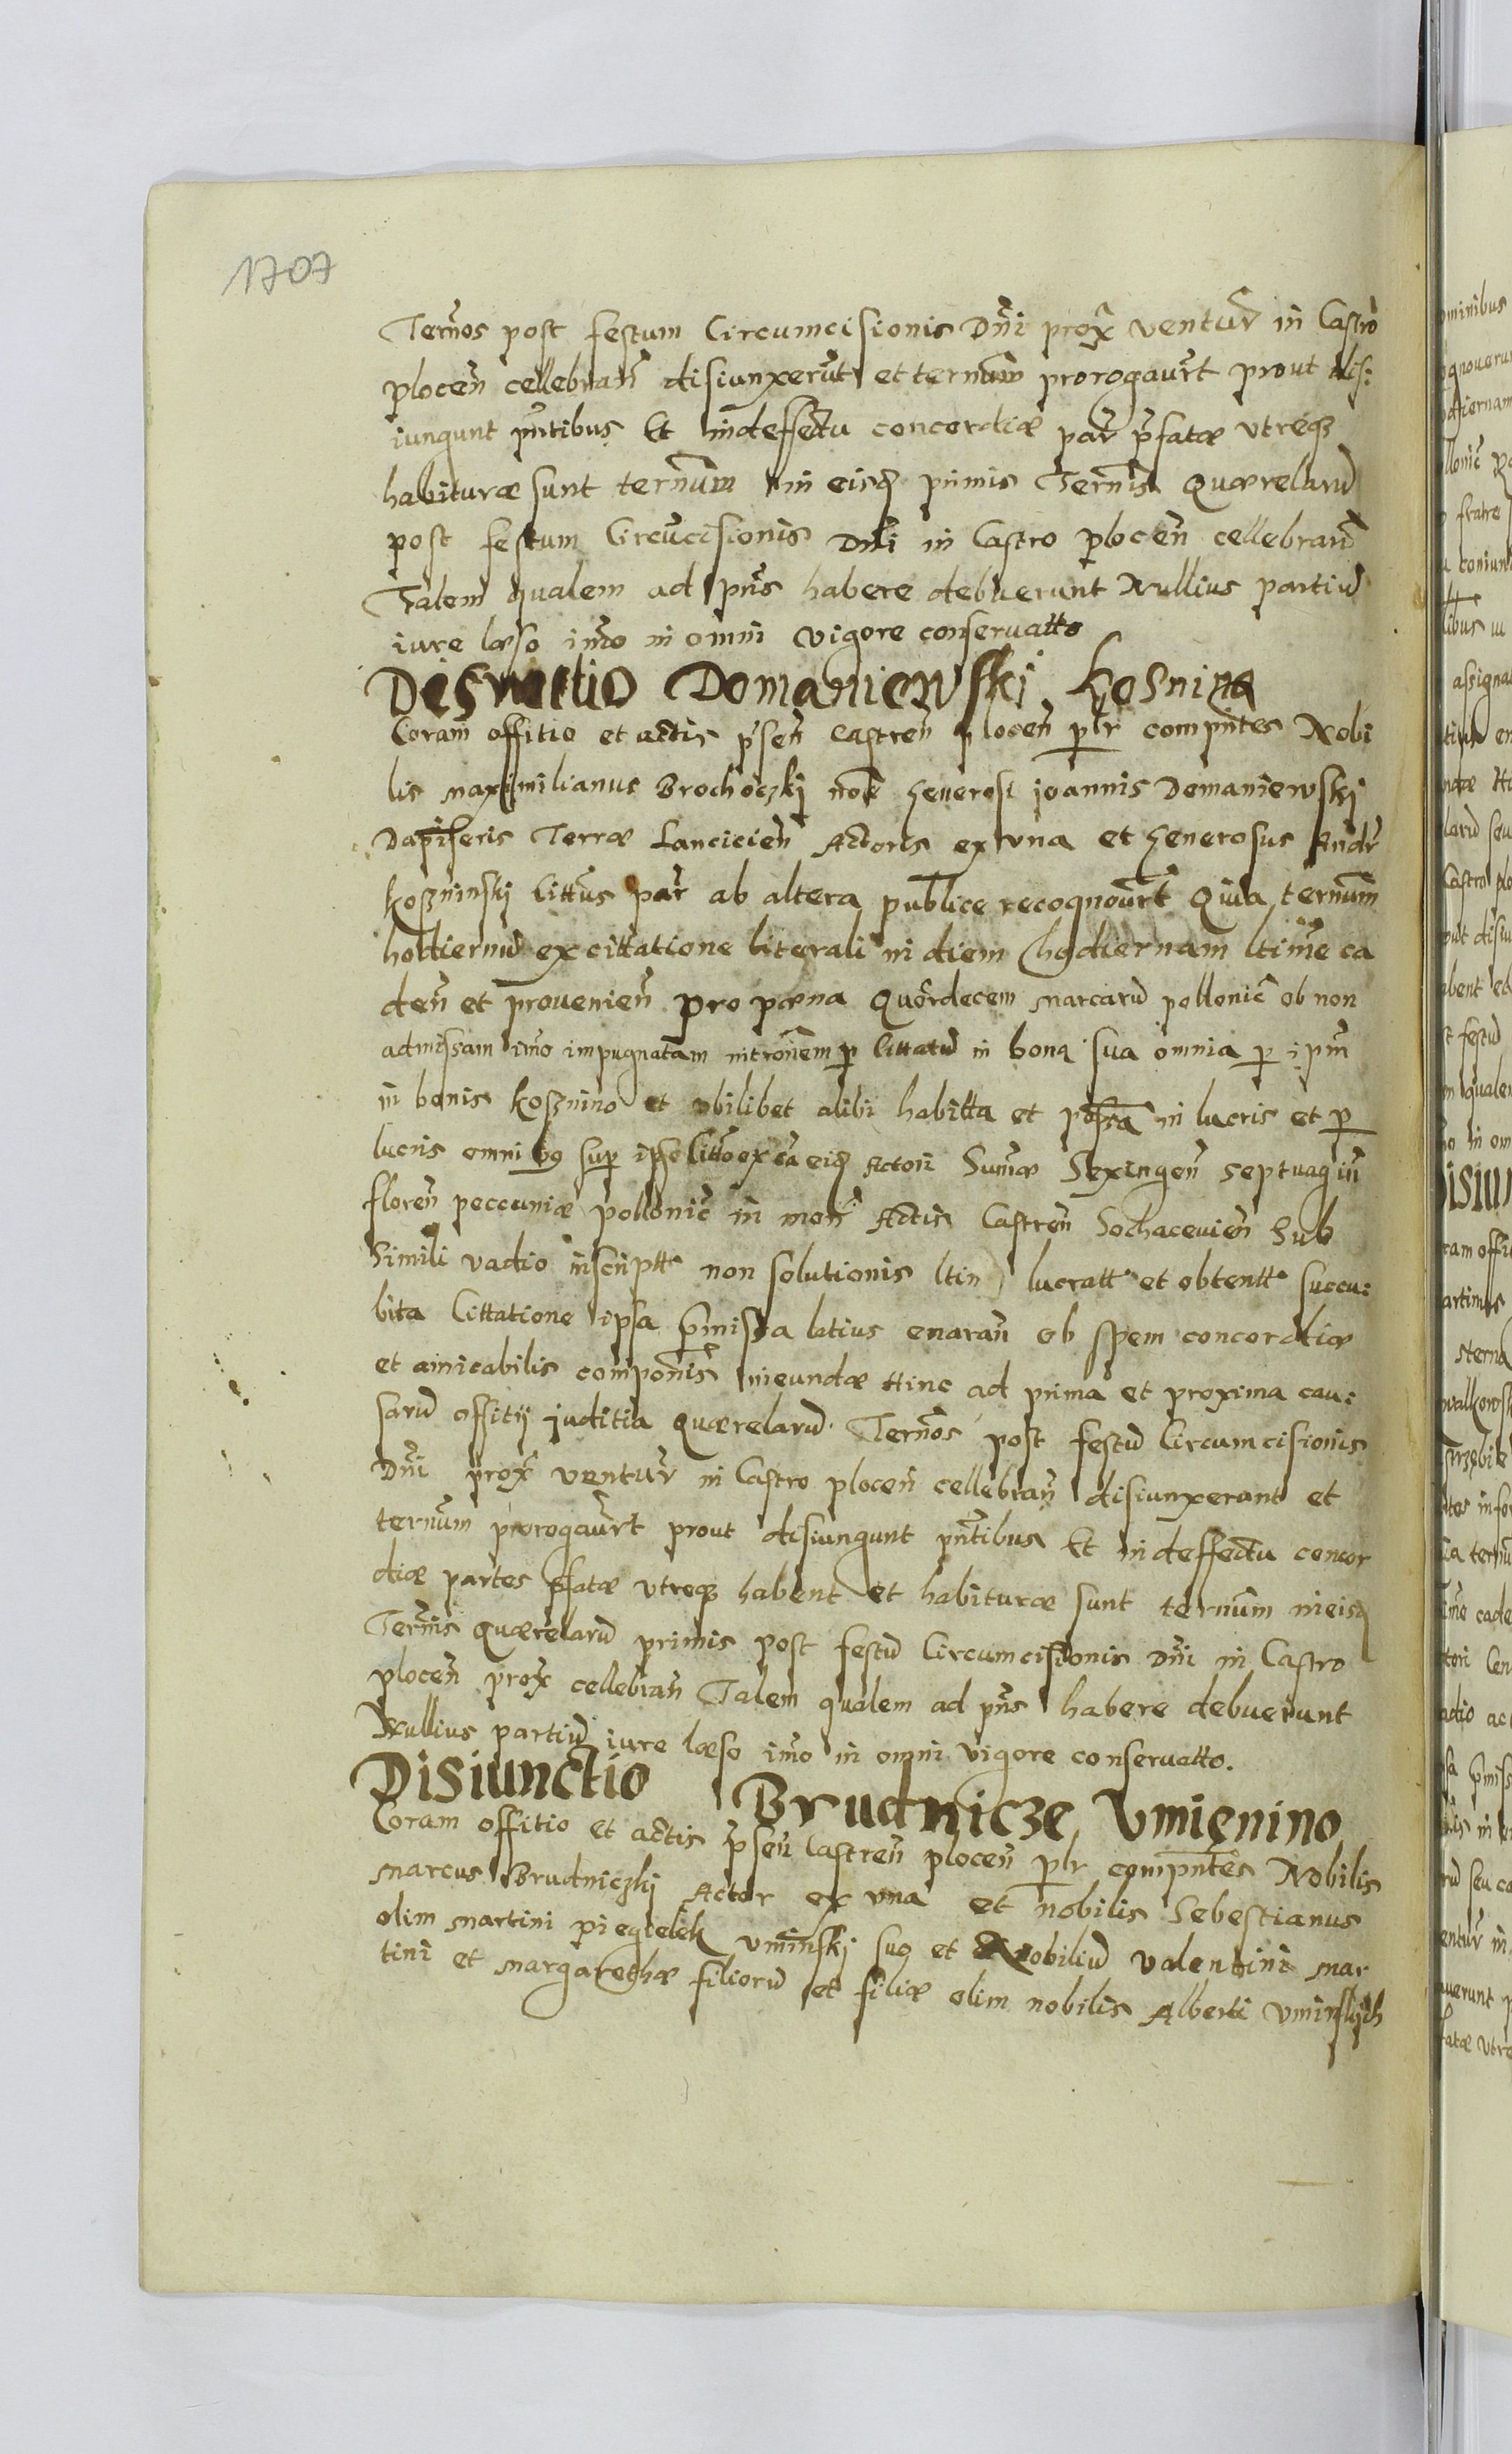 1707
Termos post festum Circumcisionis Dni prox ventur in Castro
plocen cellebran disiunxerut et ternum prorogaurt prout dis:
iungunt pntibus Et in deffectu concordiæ par pfatæ vtreqz
habituræ sunt ternum in eisd primis Ternis Quærelaru
post festum Circucisionis Dni in Castro plocen cellebran
Talem qualem ad pns habere debuerunt Nullius partiu
iure læso imo in omni vigore conseruatto
Disiunctio Domaniewski Kosnina
Coram offitio et actis psen Castren plocen plr compntes Nobi
lis Maximilianus Brochoczkj noie Generosi joannis Domaniewskj
Dapiferis Terræ Lancicien Actoris ex vna et Generosus Andr
Koszninskj Cittus par ab altera publice recognourt Quia ternum
hodiernu ex cittatione literali in diem hodiernam ltime ca
den et prouenien pro pæna Quordecem Marcaru pollonic ob non
admissam imo impugnatam intromem p Cittatu in bona sua omnia p ipm
in bonis Kosznino et vbilibet alibi habitta et possa in lucris et p
lucris omnibg sup ipso Citto ex ca eid Actori Sumæ Sexingen septuagin
floren peccuniæ pollonic in mon Actis Castren Sochacevien Sub
Simili vadio inscriptt non solutionis ltin lucratt et obtentt succu:
bita Cittatione ipsa pmissa latius enaran ob spem concordiæ
et amicabilis componis ineundæ Hinc ad prima et proxima cau:
saru offitij juditia Quærelaru Ternos post festu Circumcisionis
Dni prox ventur in Castro plocen cellebran disiunxerant et
ternum prorogaurt prout disiungunt pntibus Et in deffectu concor
diæ partes pfatæ vtreqz habent et habituræ sunt ternum in eisd
Ternis Quærelaru primis post festu Circumcisionis Dni in Castro
plocen prox cellebran Talem qualem ad pns habere debuerunt
Nullius partiu iure læso imo in omni vigore conseruatto.
Disiunctio Brudnicze Vmienino
Coram offitio et actis psen Castren plocen plr compntes Nobilis
Marcus Brudniczkj Actor ex vna et nobilis Sebestianus
olim Martini piegielek Vminskj suo et Nobiliu Valentini Mar
tini et Margarethæ filioru et filiæ olim nobilis Alberti Vminskich